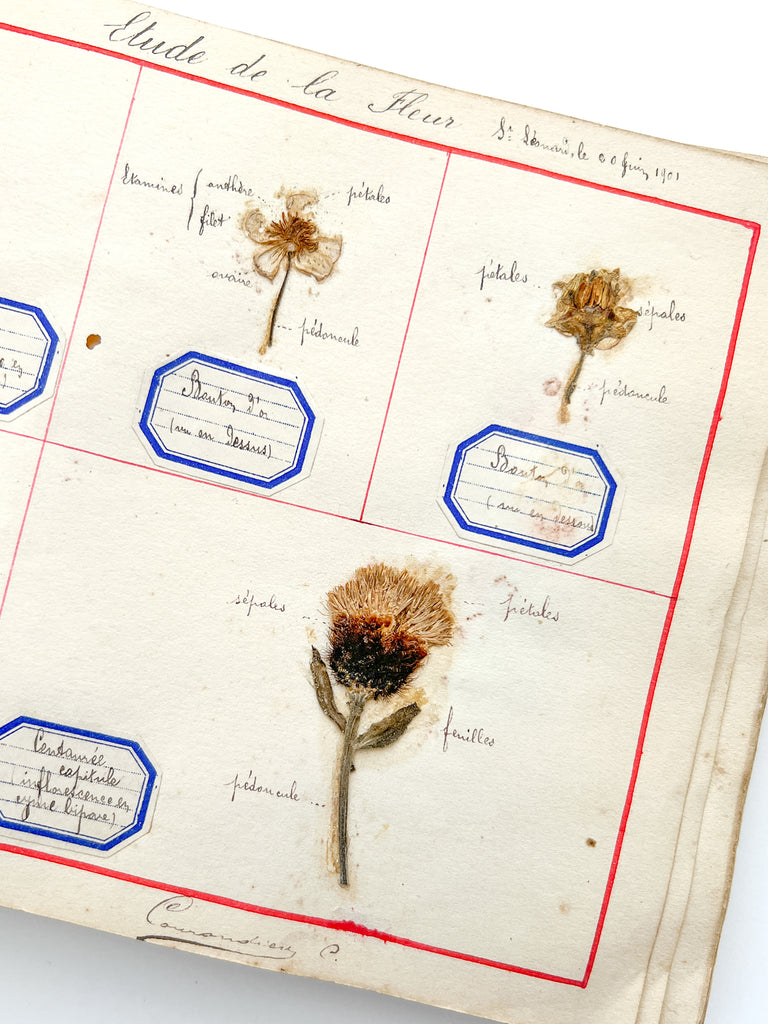 Etude de la Fleur
le Juin 1901
Etamines { anthère
filet
pétales
ovaire
pédoncule
Bouton d'or
(vu en dessus)
pétales
sépales
pédoncule
Bouton d'or
(vu en dessous
sépales
pétales
feuilles
pédoncule
Centaurée
capitule
(inflorescence en
cyme bipare)
C.